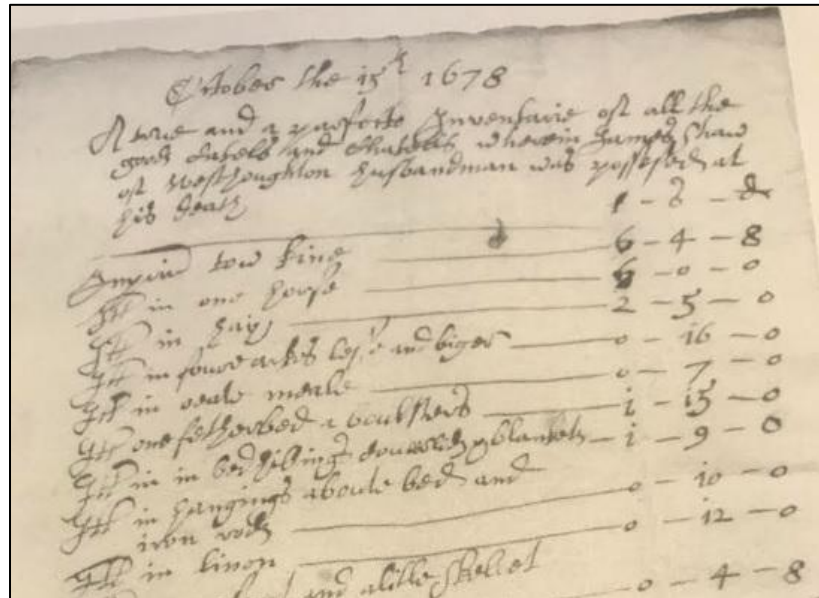 October the 15th 1678
A true and a parfecte Inventarie of all the
goods Catels and Chatells wherein James Shaw
of Westhoughton husbandman was possesed at
his death
l - s - d
tow kine 6 - 4 - 8
Itt in one horse 6 - 0 - 0
Itt in hay 2 - 5 - 0
Itt in foure arkes lesse and biger 0 - 16 - 0
Itt in meale 0 - 7 - 0
Itt one fetherbed a boulsters 1 - 15 - 0
Itt in in bed hillings blankets 1 - 9 - 0
Itt in hangings aboute bed and
iron rods 0 - 10 - 0
Itt in linon 0 - 12 - 0
and a litle skellet 0 - 4 - 8